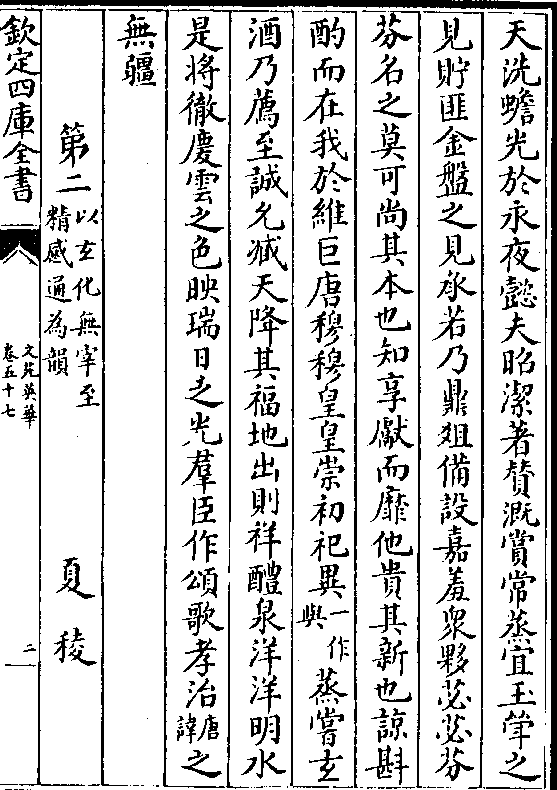 天洗蟾光於永夜懿夫昭潔著賛溉賞常蒸宜玉斝之
見貯匪金盤之見承若乃鼎俎備設嘉羞衆夥苾苾芬
芬名之莫可尚其本也知享獻而靡他貴其新也諒斟
酌而在我於維巨唐穆穆皇皇崇初祀異一作與蒸嘗玄
酒乃薦至誠允臧天降其福地出則祥醴泉洋洋明水
是將徹慶雲之色映瑞日之光羣臣作頌歌孝治唐諱之
無疆
第二以玄化無宰至精感通為韻 夏稜
欽定四庫全書 文苑英華 卷五十七 二